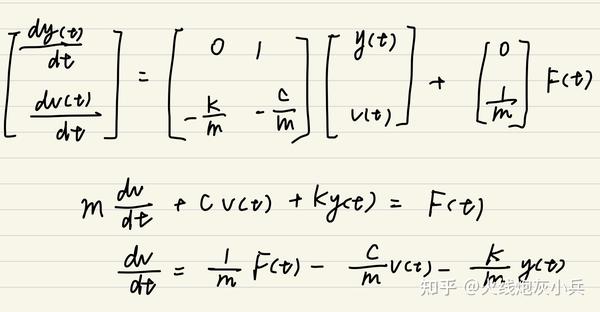 [dy(t)/dt; dv(t)/dt] = [0 1; -k/m -c/m] [y(t); v(t)] + [0; 1/m] F(t)
m dv/dt + c v(t) + ky(t) = F(t)
dv/dt = 1/m F(t) - c/m v(t) - k/m y(t)
知乎 @火线炮灰小兵